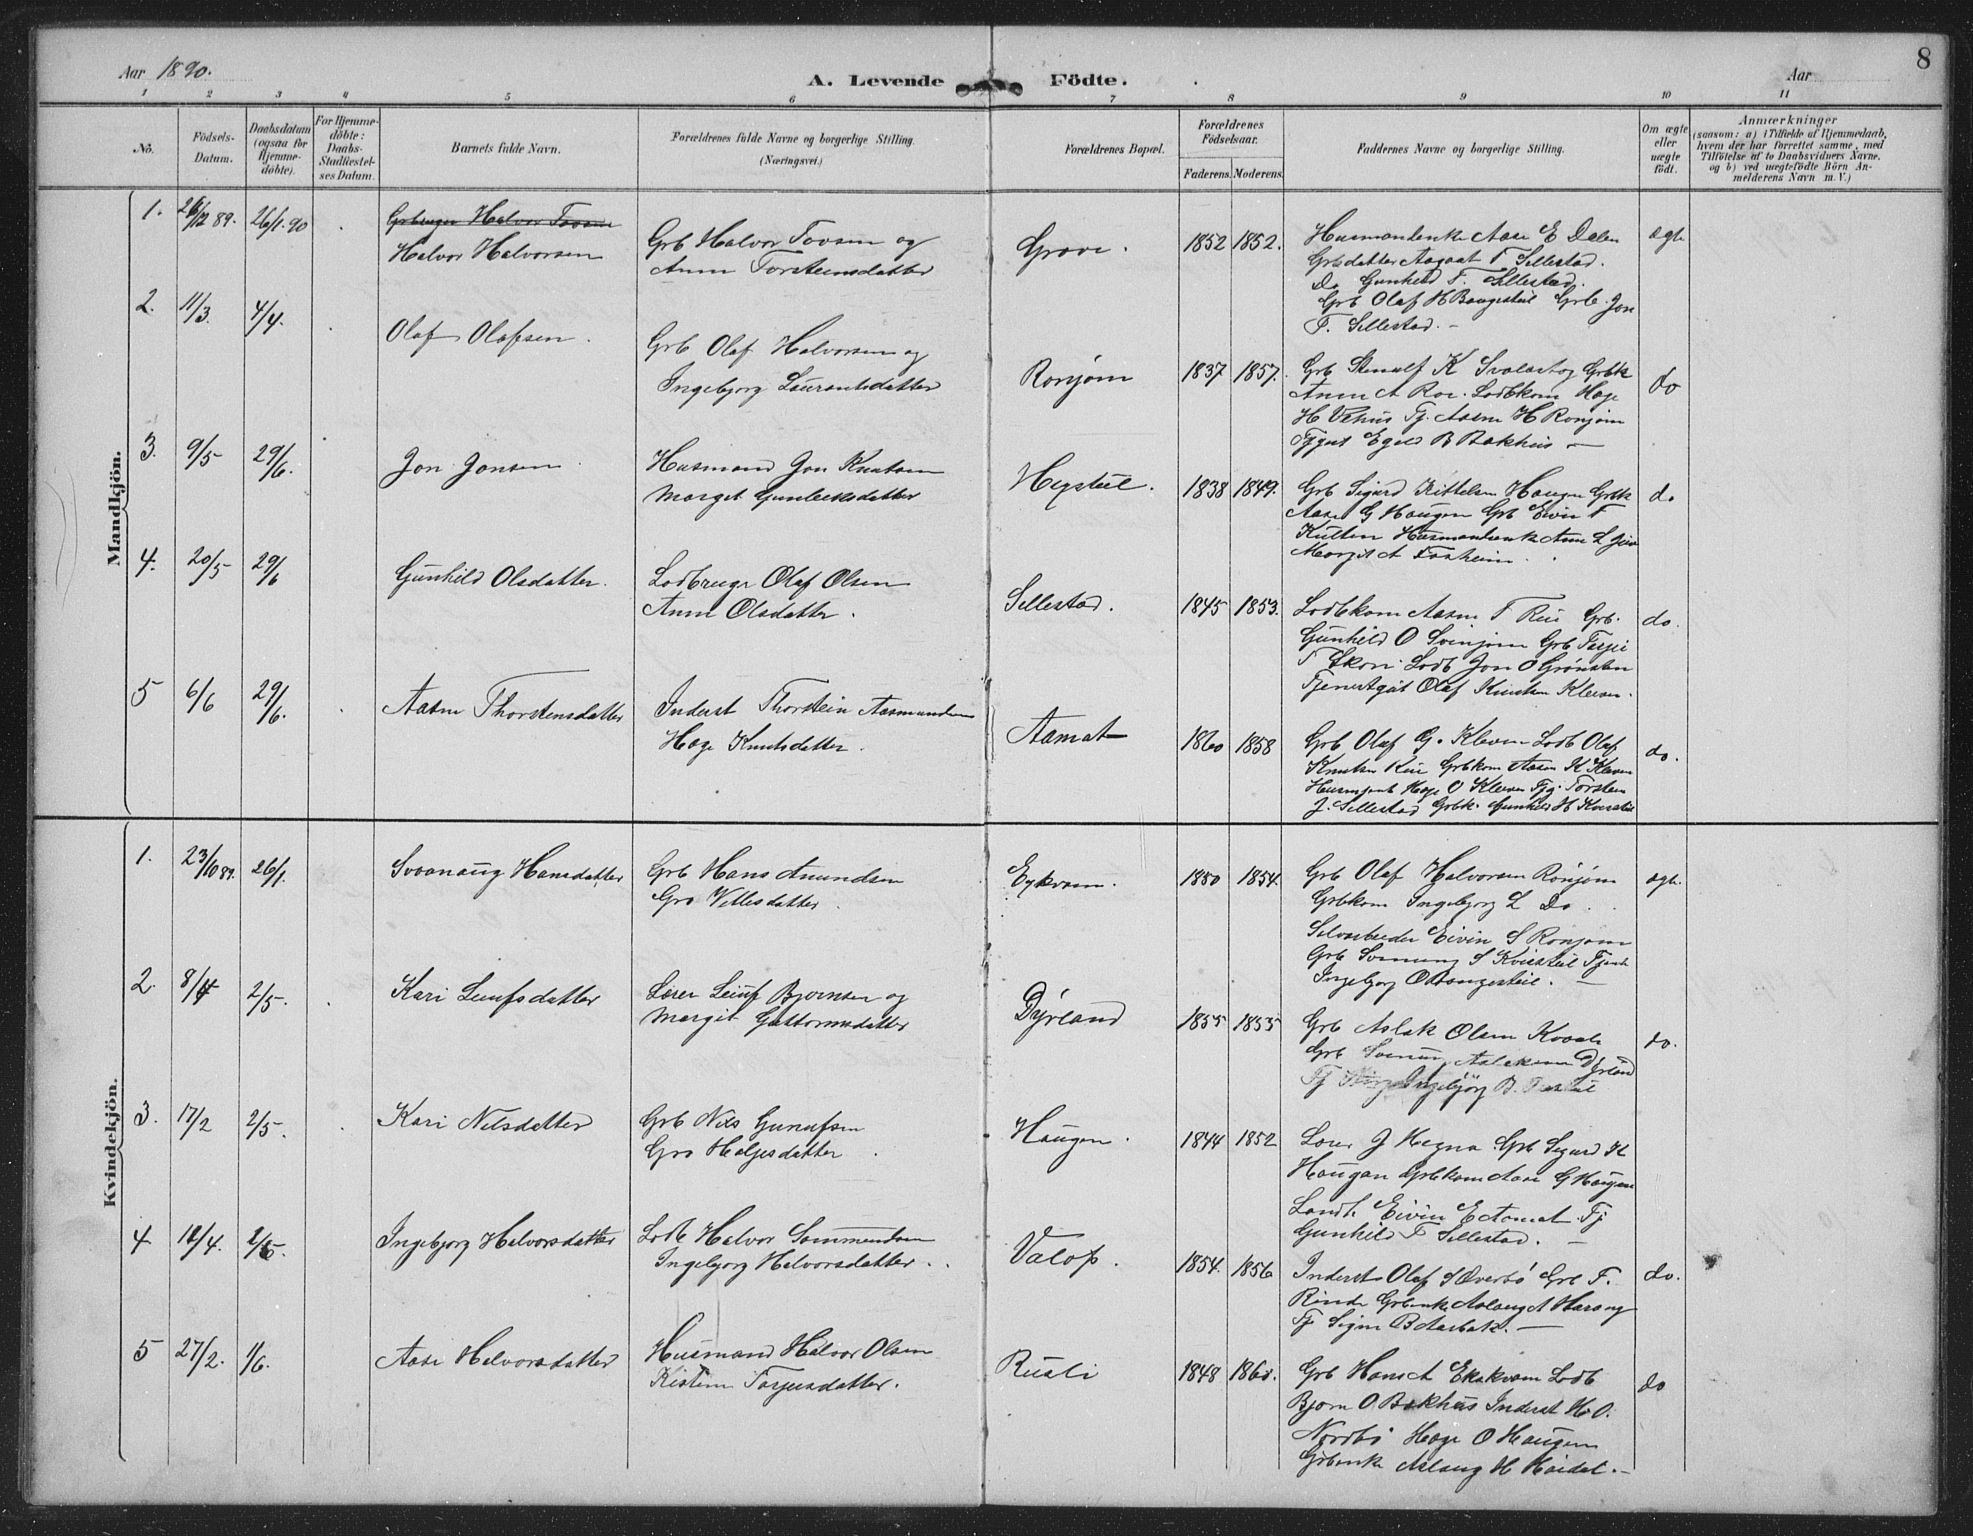 8
Aar 1890.
A. Levende Födte.
Aar
1 2 3 4 5 6 7 8 9 10 11
No.
Födsels-Datum.
Daabsdatum (ogsaa for Hjemme-döbte).
For Hjemme-döbte: Daabs-Stadfæstel-ses Datum.
Barnets fulde Navn.
Forældrenes fulde Navne og borgerlige Stilling. (Næringsvei.)
Forældrenes Bopæl.
Forældrenes Födselsaar.
Faderens. Moderens.
Faddernes Navne og borgerlige Stilling.
Om ægte eller uægte födt.
Anmærkninger
(saasom: a) i Tilfælde af Hjemmedaab, hvem der har forrettet samme, med Tilföielse af to Daabsvidners Navne, og b) ved uægtefödte Börn An-melderens Navn m. V.)
Mandkjön.
1. 26/1. 90 Halvor Tovsen
Halvor Halvorsen
Grb Halvor Tovsen og
Anne Torsteinsdatter
Grove. 1852 1852.
Husmandenke Aase E Dalen
Grbdatter Aagaat T Sillestad.
Do Gunhild T. Sillestad.
Grb Olaf H Baugestul Grb. Jon
T. Sillestad. –
ægte
2. 11/3. 4/4. Olaf Olafsen.
Grb Olaf Halvorsen og
Ingebjorg Laurantsdatter
Ronjom 1837 1857.
Grb K Svalastog Grbk
Anne A Roe. Lodbkone Hæge
H Vehus Tj. Aasne H Ronjom
Tjgut Egild B Bakhus –
do
3. 9/5 29/6. Jon Jonsen
Husmand Jon Knutsen
Margit Gunleiksdatter
Hegstul. 1838 1849.
Grb Sigurd Kittelsen Haugen Grbk
Aase G Haugen Grb Eivin T
Kulten Husmandenk Anne L
Margit A.
do
4. 20/5 29/6 Gunhild Olsdatter.
Lodbruger Olaf Olsen
Anne Olsdatter.
Sillestad. 1845 1853.
Lodbkone Aasne T Rui Grb.
Gunhild O Svinjom Grb Terjei
T Lodb Jon O Grönsten
Tjenestgut Olaf Knutsen Kleven.
do.
5 6/6 29/6. Aasne Thorsteinsdatter
Inderst Thorstein Aasmundsen
Hæge Knutsdatter.
Aamat 1860 1858
Grb Olaf G. Kleven Lodb Olaf
Knutsen Rui Grbkone Aasne K Kleven
Hæge O Kleven Tjg. Torsten
J. Sillestad Grbk. Gunhild H
do.
Kvindekjön.
1. 23/10 89. 26/1. Svanaug Hansdatter
Grb Hans Amundsen
Gro Villesdatter.
Eykvam. 1850 1854.
Grb Olaf Halvorsen Ronjom
Grbkone Ingebjorg L Do.
Selvarbeider Eivin S Ronjom
Grb S Kvirstuil
Ingebjorg O Baugestuil. –
ægte.
2. 8/4 2/5. Kari Leiufsdatter
Lærer Leiuf Bjornsen og
Margit Guttormsdatter
Dyrland 1855 1855
Grb Aslak Olsen Kvaale
Grb Dyrland
Tj Ingebjörg B.
do.
3. 17/2 2/5. Kari Nilsdatter
Grb Nils Gunufsen
Gro Helgesdatter.
Haugen. 1844 1852
Lærer J Hegna Grb Sigurd K
Haugan Grbkone Aase G Haugen
Landh Eivin E Aamat Tj
Gunhild T Sillestad. –
4. 12/4. 2/5. Ingebjorg Halvorsdatter
Lodb Halvor
Ingebjorg Halvorsdatter.
Valop. 1854. 1856
Inderst Olaf S Överbö Grb T.
Rinde Grbenke Aslaug A
Tj Signe B Aarbak. –
do.
5 27/2. 1/6. Aase Halvorsdatter
Husmand Halvor Olsen
Kisten Torjusdatter.
Rusli 1848 1860.
Grb Hans A Ekakvam Lodb
Bjorn O Bakhus Inderst H. O.
Nordbö Hæge O Haugen
Grbenke Aslaug H Haidal. –
do